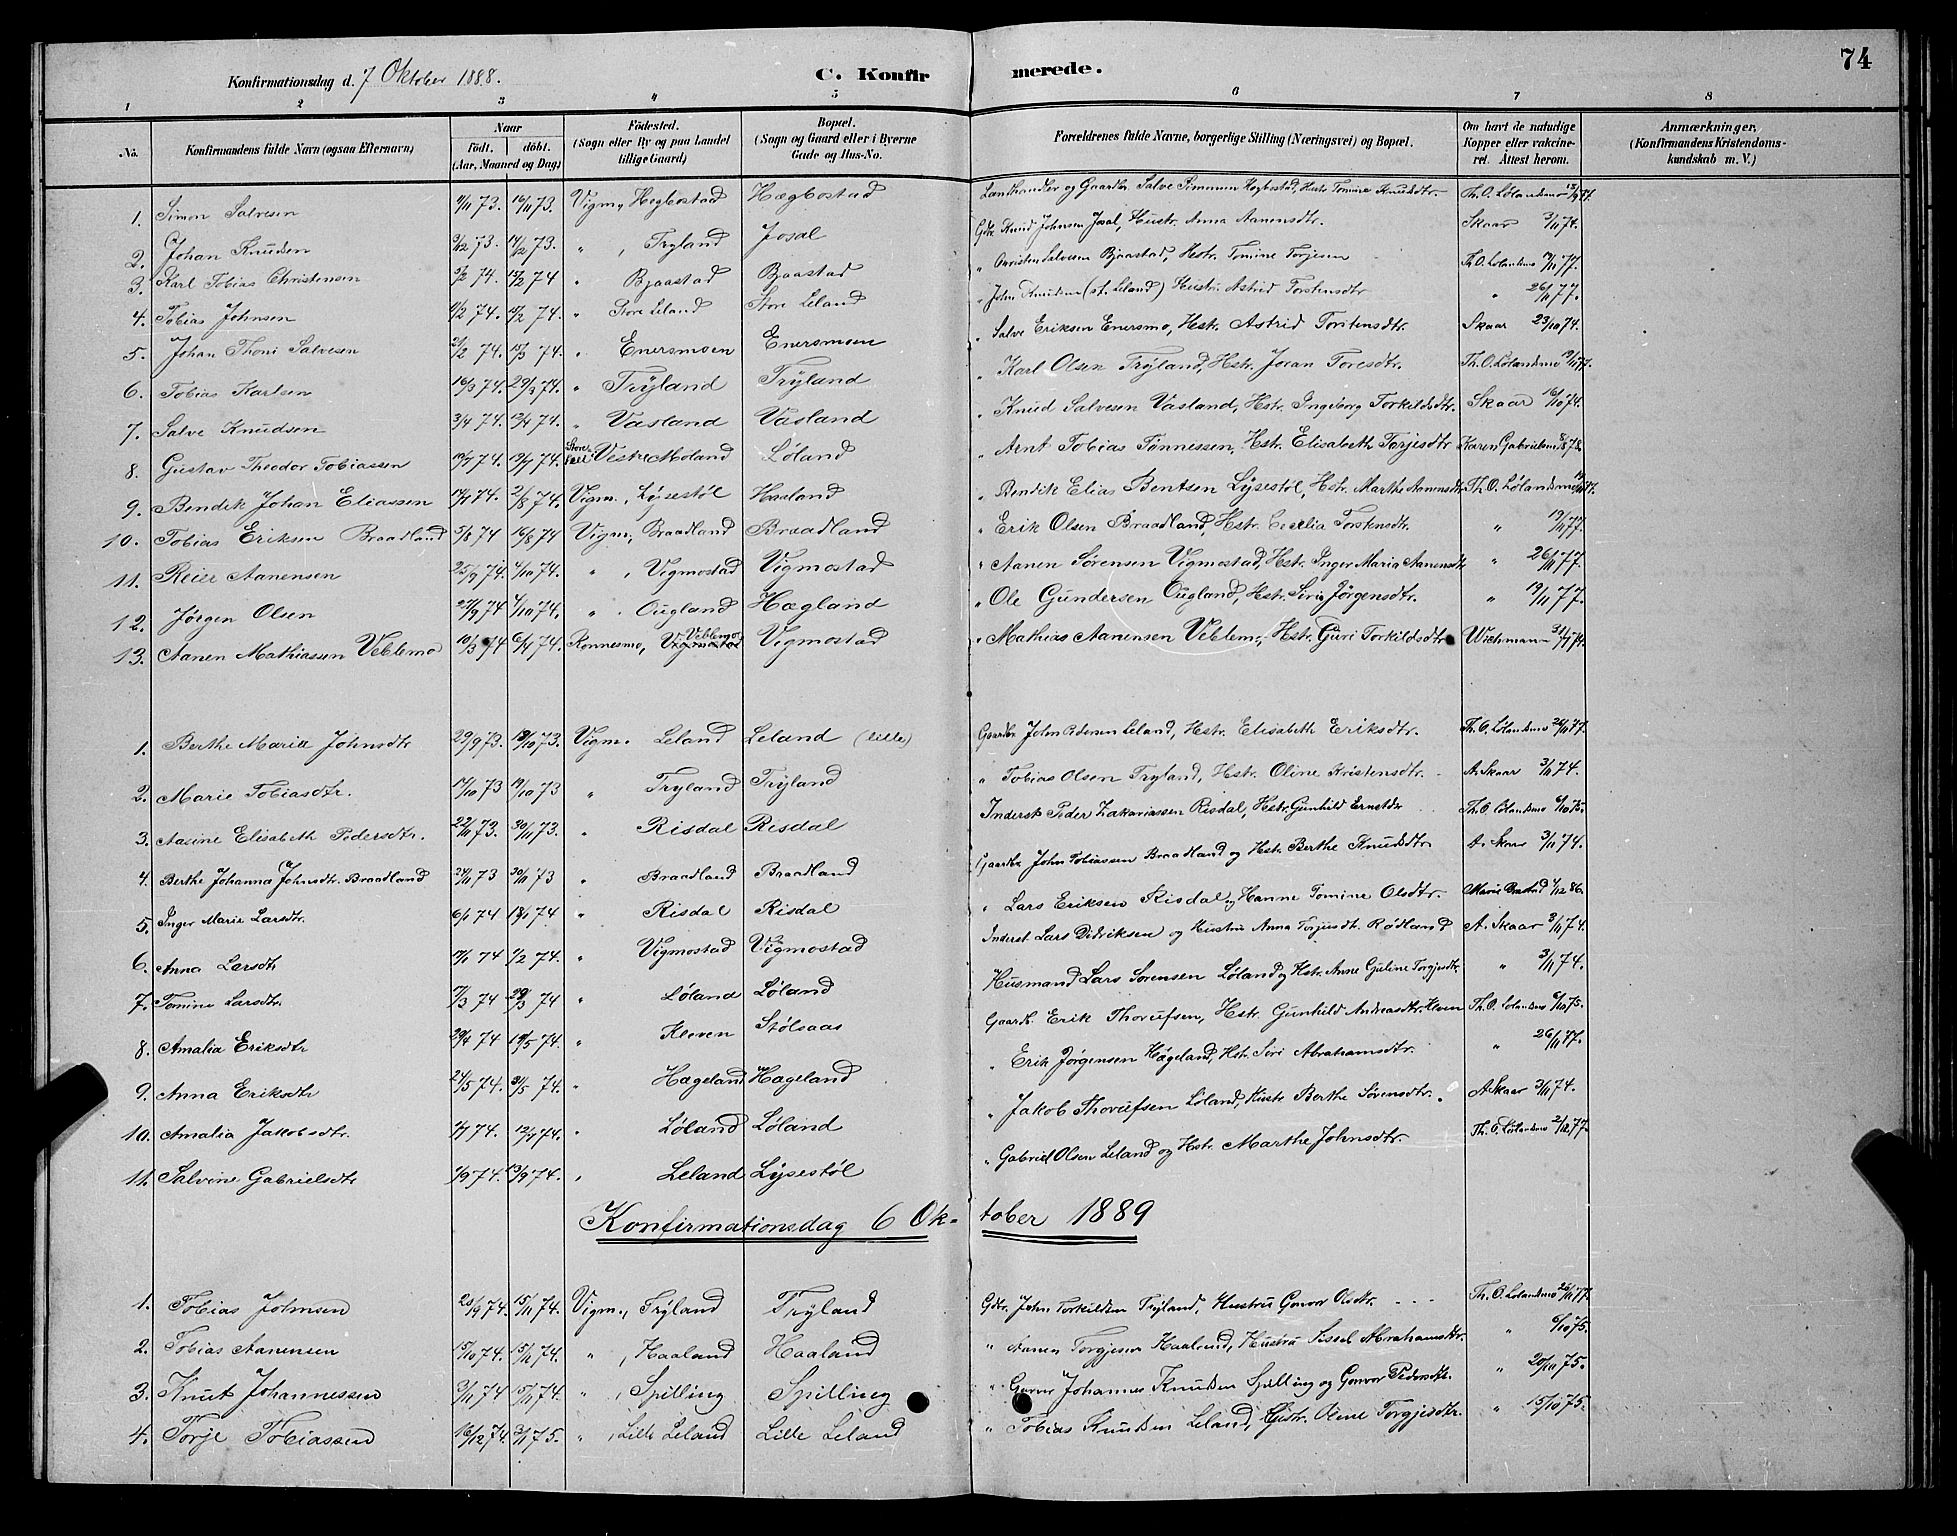 74
Konfirmationsdag d. 7 Oktober 1888. C. Konfirmerede.
1 2 3 4 5 6 7 8
No. Konfirmandens fulde Navn (ogsaa Efternavn) Naar Født. døbt. (Aar, Maaned og Dag) Fødested. (Sogn eller By og paa Landet tillige Gaard) Bopæl. (Sogn og Gaard eller i Byerne Gade og Hus-No. Forældrenes fulde Navne, borgerlige Stilling (Næringsvei) og Bopæl. Om havt de naturlige Kopper eller vakcineret. Attest herom. Anmærkninger. (Konfirmandens Kristendomskundskab m. V.)
1. Simon Salvesen 16/11 73. Vigm., Hegbostad Hægbostad Landhandler og Gaardbr. Salve Simonsen Hegbostad, Hstr. Tomine Knudsdtr. Th. O. Lølandsmo
2. Johan Knudsen 73. " , Tryland Josal Gbr. Knud Johnsen Josal, Hustr. Anna Aanensdtr. Skaar 3/11 74.
3. Karl Tobias Christensen 74. 74 " Bjaastad Bjaastad " Christen Salvesen Bjaastad, Hstr. Tomine Torjesen Th. O. Lølandsmo 77.
4. Tobias Johnsen 74. 74. " Store Leland Store Leland " John Knudsen (st. Leland) Hustr. Astrid Torstensdtr " 26/11 77.
5. Johan Thoni Salvesen 74. 15/3 74. " Enersmoen Enersmoen " Salve Eriksen Enersmo, Hstr. Astrid Torstensdtr. Skaar 23/10 74.
6. Tobias Karlsen 16/3 74. 29/3 74. " Tryland Tryland " Karl Olsen Tryland, Hstr. Joran Toresdtr. Th. O. Lølandsmo
7. Salve Knudsen 3/4 74. 12/4 74. " Vasland Vasland " Knud Salvesen Vasland, Hstr. Ingeborg Torkildsdtr. Skaar 16/10 74.
8. Gustav Theodor Tobiassen 74. 74. Vestre Moland Løland " Arnt Tobias Tønnessen, Hstr. Elisabeth Torjesdtr Karen Gabrielsen
9. Bendik Johan Eliassen 74. 2/8 74. Vigm., Lysestøl Haaland " Bendik Elias Bentsen Lysestøl, Hstr. Marthe Aanensdtr. Th. O. Lølandsmo
10. Tobias Eriksen Braadland 5/8 74 16/8 74 Vigm., Braadland Braadland " Erik Olsen Braadland, Hstr. Cecelia Torstensdtr. " 19/11 77.
11. Reier Aanensen 25/9 74. 4/10 74. " , Vigmostad Vigmostad " Aanen Sørensen Vigmostad, Hstr. Inger Maria Aanensdtr " 26/11 77.
12. Jørgen Olsen 27/9 74 4/10 74. " . Ougland Hægland " Ole Gundersen Ougland, Hstr. Siri Jörgensdtr. " 19/11 77.
13. Aanen Mathiassen Veblemo 10/3 74 6/4 74. Konnesmo, Veblemo Vigmostad Vigmostad " Mathias Aanensen Veblem., Hstr. Guri Torkildsdtr Wichmann
1. Berthe Marie Johnsdtr 29/9 73. 73. Vigm. Leland Leland (lille) Gaardbr. John Pedersen Leland, Hstr. Elisabeth Eriksdtr. Th. O. Lølandsmo 77.
2. Marie Tobiasdtr. 73 19/10 73 " Tryland Tryland " Tobias Olsen Tryland, Hstr. Oline Kristensdtr. A. Skaar 3/11 74.
3. Aasine Elisabeth Pedersdtr. 22/11 73. 30/11 73. " Risdal Risdal Inderst Peder Zakariassen Risdal, Hstr. Gunhild Ernstdtr Th. O. Lølandsmo 6/10 75.
4. Berthe Johanna Johnsdtr. Braadland 73 30/11 73 " Braadland Braadland Gaardbr. John Tobiassen Braadland og Hstr. Berthe Knudsdtr A. Skaar 3/11 74.
5. Inger Marie Larsdtr. 6/1 74 18/1 74 " Risdal Risdal " Lars Eriksen Risdal og Hanne Tomine Olsdtr. 86.
6. Anna Larsdtr 74 1/2 74. " Vigmostad Vigmostad Inderst Lars Didriksen og Hustru Anna Torjesdtr. Rødland A. Skaar 3/11 74.
7. Tomine Larsdtr. 7/3 74 29/3 74 " Løland Løland Husmand Lars Sorensen Løland og Hstr. Anne Guline Torgjesdtr. " 3/11 74.
8. Amalia Eriksdtr 29/4 74 74. " Kleven Stølsaas Gaardb. Erik Thorufsen, Hstr. Gunhild Andreasdtr. Kleven Th. O. Lølandsmo 6/10 75.
9. Anna Eriksdtr 24/5 74. 31/5 74. " Hægeland Hageland " Erik Jørgensen Högeland, Hstr. Siri Abrahamsdtr. " 26/11 77.
10. Amalia Jakobsdtr. 74. 12/7 74. " Løland Løland " Jakob Thorufsen Løland, Hustr. Berthe Sørensdtr. A. Skaar 3/11 74.
11. Salvine Gabrielsdtr 1/9 74. 13/9 74. " Leland Lysestøl " Gabriel Olsen Leland og Hstr. Marthe Johnsdtr. Th. O. Lølandsmo 77.
Konfirmationsdag 6 Oktober 1889
1. Tobias Johnsen 20/9 74. 15/11 74. Vigm., Tryland Tryland Gbr. John Torkildsen Tryland, Hustru Gonvor Olsdtr. Th. O. Lølandsmo 26/11 77.
2. Tobias Aanensen 15/10 74. 15/11 74. " , Haaland Haaland " Aanen Torgjesen Haaland, Hustru Sissel Abrahamsdtr. " 6/10 75.
3. Knut Johannessen 3/11 74 15/11 74. " , Spilling Spilling " Johannes Knudsen Spilling og Gonvor Pedersdtr. " 20/10 75.
4. Torje Tobiassen 16/12 74. 3/1 75. " , Lille Leland Lille Leland " Tobias Knudsen Leland, Hustr. Oline Torgjesdtr. " 15/10 75.